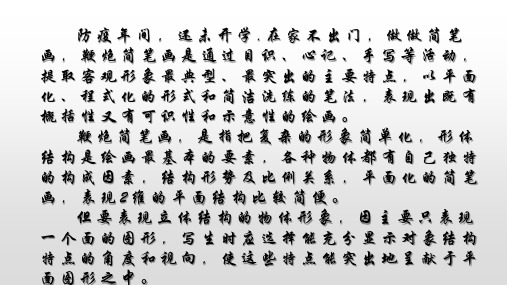 防疫年间，还未开学,在家不出门，做做简笔
画，鞭炮简笔画是通过目识、心记、手写等活动，
提取客观形象最典型、最突出的主要特点，以平面
化、程式化的形式和简洁洗练的笔法，表现出既有
概括性又有可识性和示意性的绘画。
鞭炮简笔画，是指把复杂的形象简单化，形体
结构是绘画最基本的要素，各种物体都有自己独特
的构成因素，结构形势及比例关系，平面化的简笔
画，表现2维的平面结构比较简便。
但要表现立体结构的物体形象，因主要只表现
一个面的图形，写生时应选择能充分显示对象结构
特点的角度和视向，使这些特点能突出地呈献于平
面图形之中。